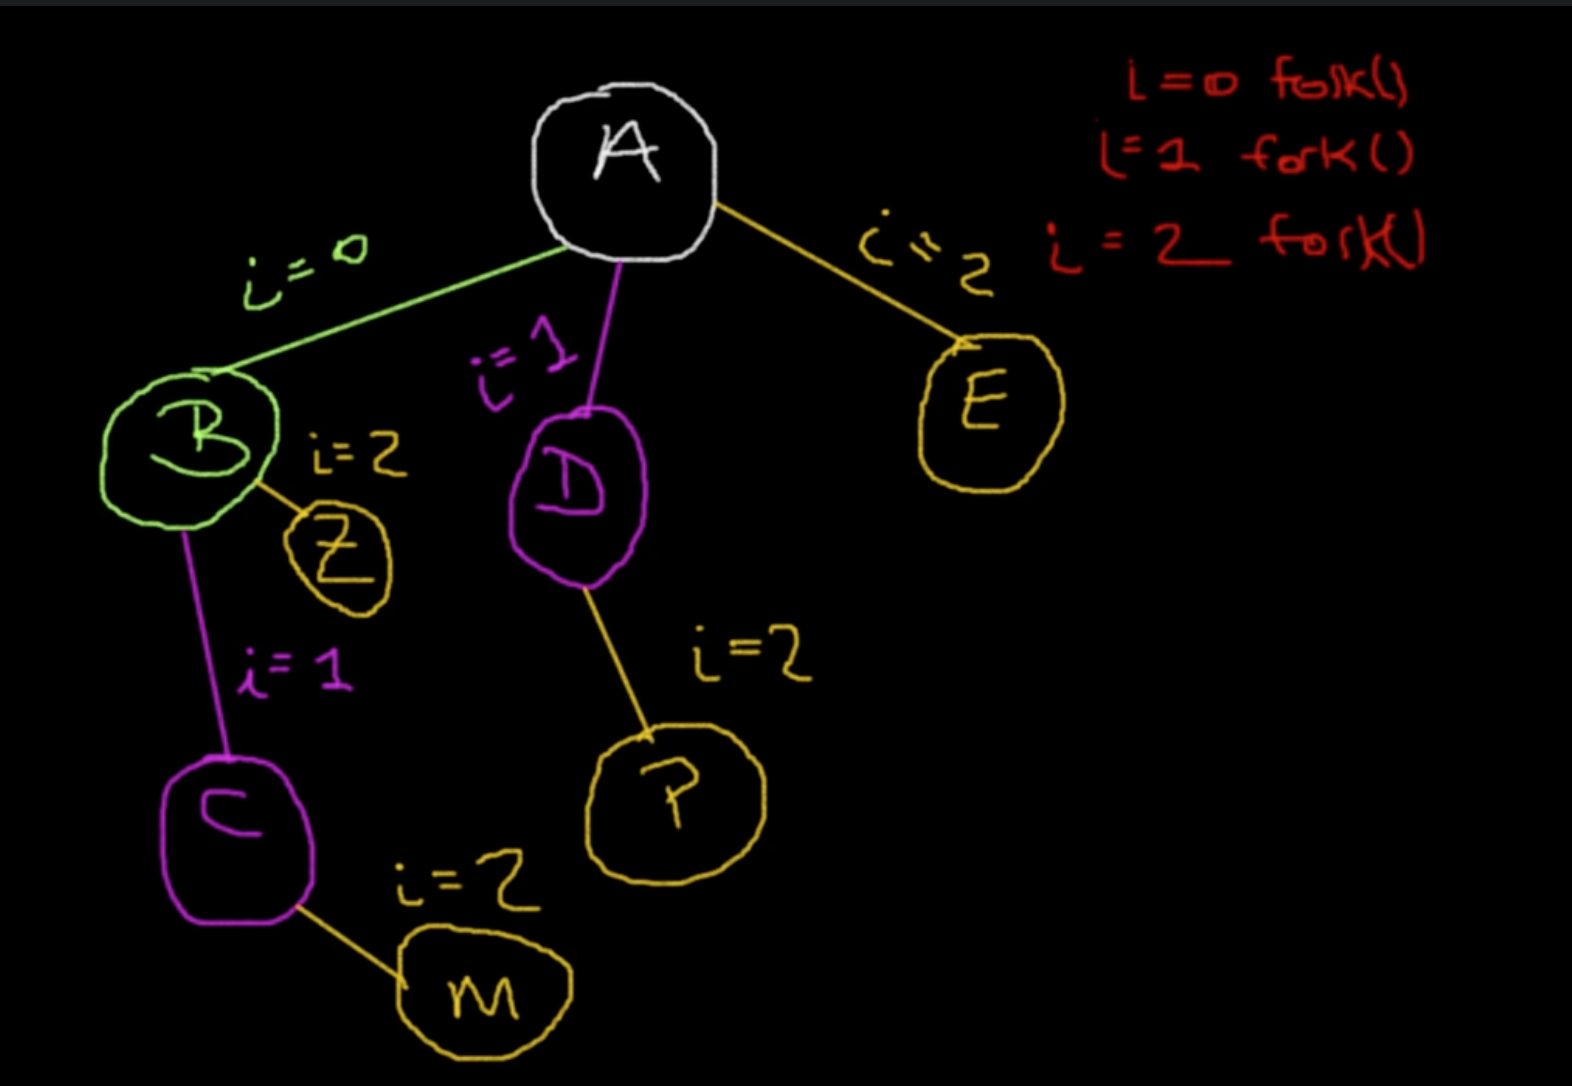 A
i=0 fork()
i=1 fork()
i=2 fork()
i=0
i=1
i=2
B
i=2
Z
D
E
i=1
i=2
C
P
i=2
M